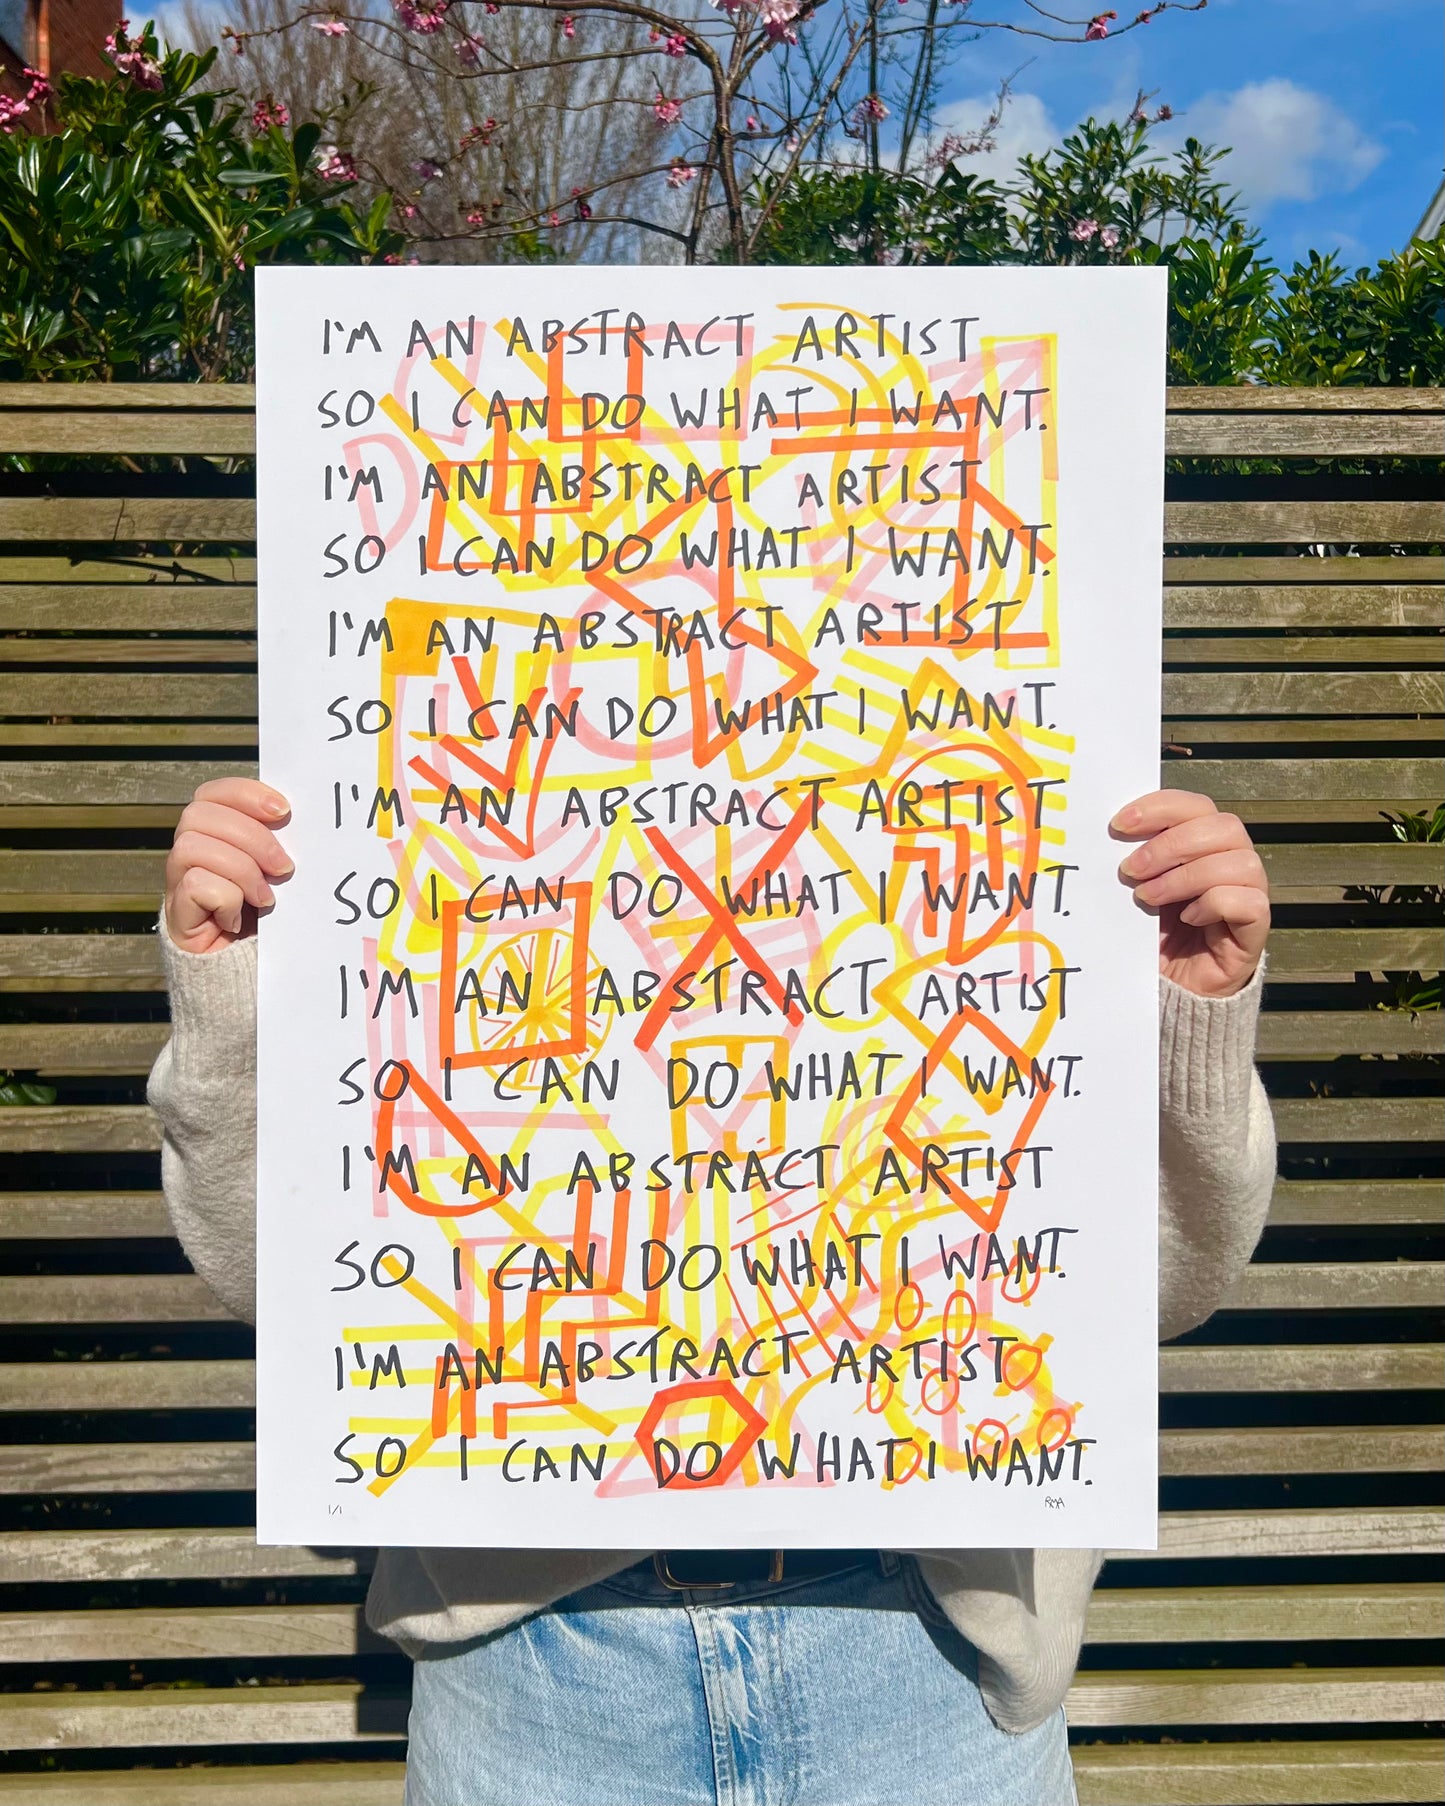 I'M AN ABSTRACT ARTIST
SO I CAN DO WHAT I WANT.
I'M AN ABSTRACT ARTIST
SO I CAN DO WHAT I WANT.
I'M AN ABSTRACT ARTIST
SO I CAN DO WHAT I WANT.
I'M AN ABSTRACT ARTIST
SO I CAN DO WHAT I WANT.
I'M AN ABSTRACT ARTIST
SO I CAN DO WHAT I WANT.
I'M AN ABSTRACT ARTIST
SO I CAN DO WHAT I WANT.
I'M AN ABSTRACT ARTIST
SO I CAN DO WHAT I WANT.
1/1 RMA